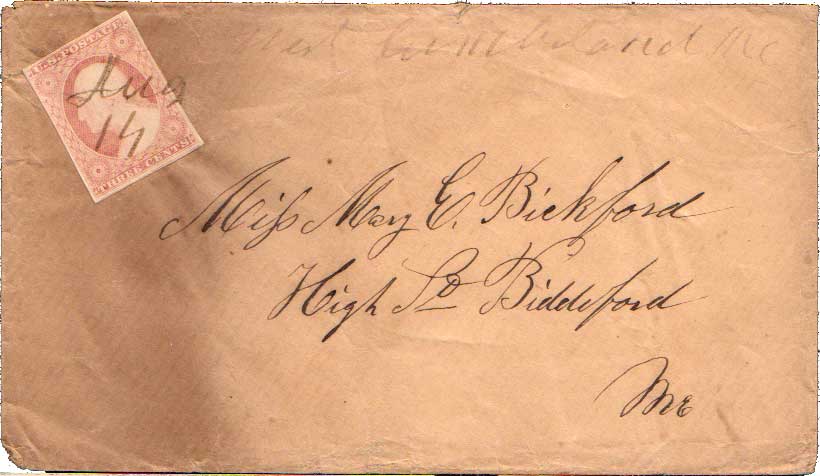 West Cumberland Me
U.S. POSTAGE
Aug
14
THREE CENTS
Miss Mary E. Bickford
High St Biddeford
Me